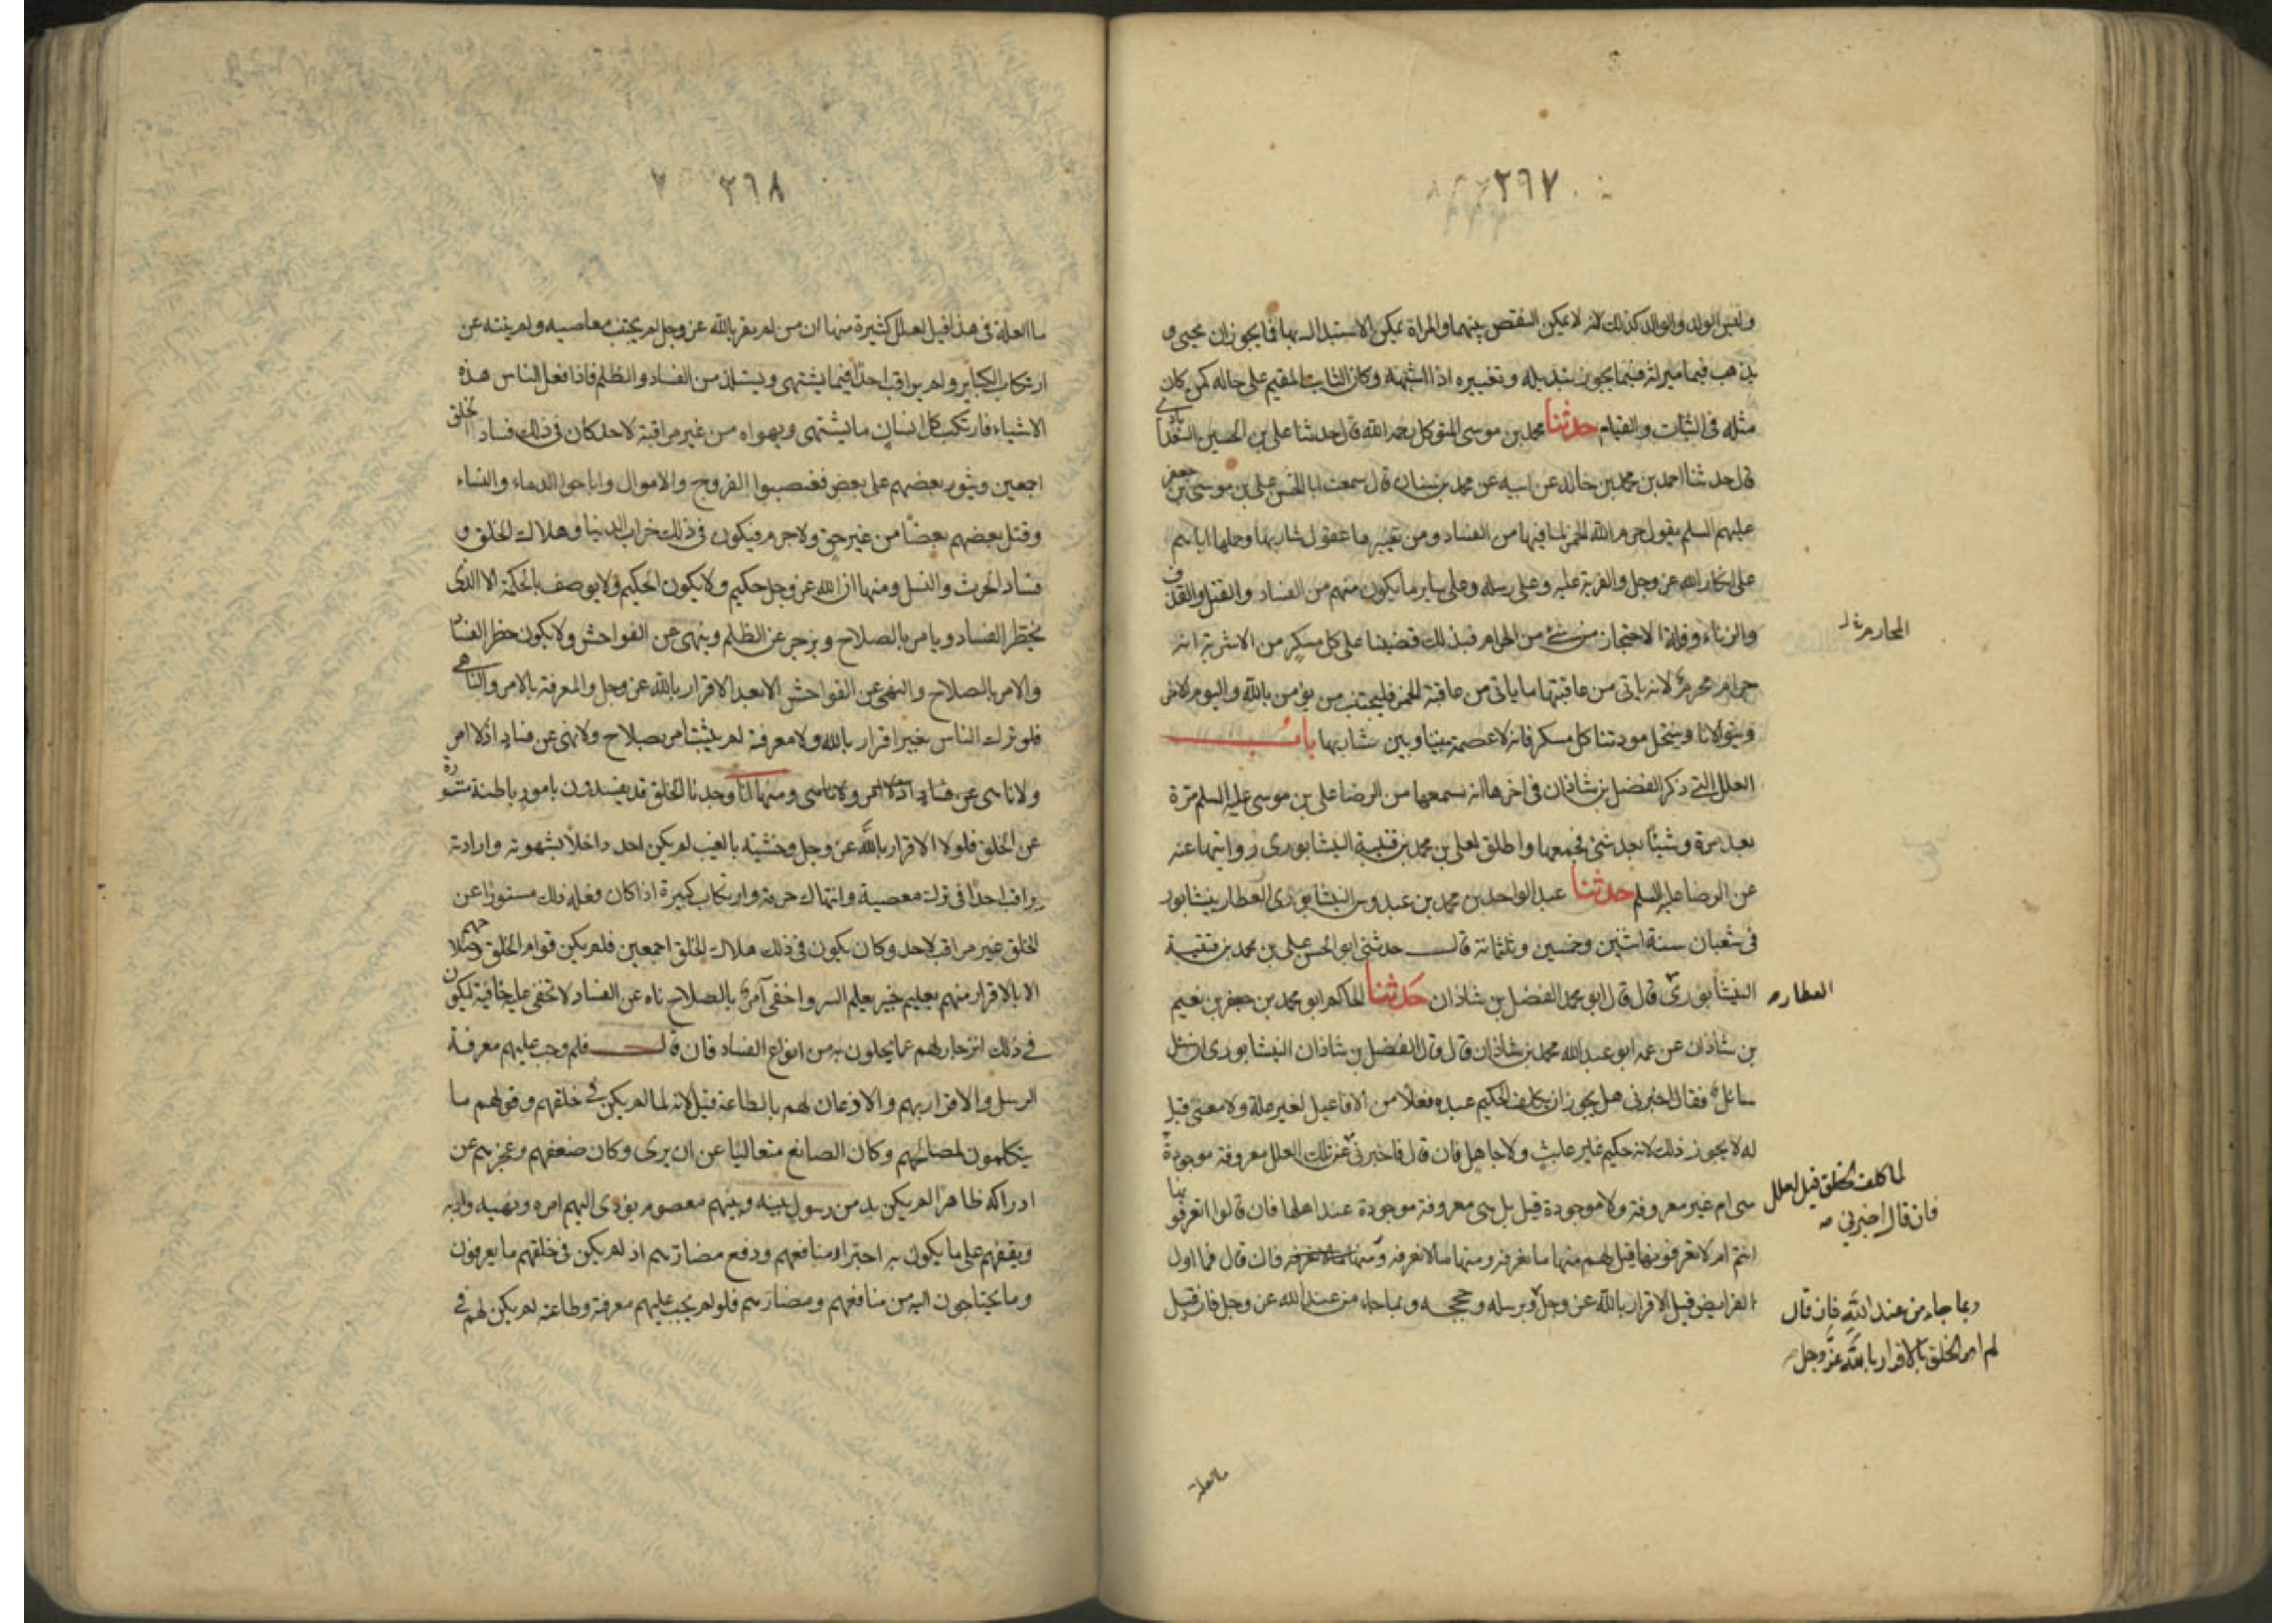 ٢٩٧
وليس الولد والوالد كذلك لانه لا يمكن التقص بينهما والمراة يمكن الاستبدال بها فما يجوز ان يجيى و
يذهب فيما ميراثه فيما يجوز تبديله وتغييره اذا اشبهه وكان الثابت المقيم على حاله كمن كان
مثله فى الثبات والقيام حدثنا محمد بن موسى المتوكل رحمه الله قال حدثنا على بن الحسين السعدآبادى
قال حدثنا احمد بن محمد بن خالد عن ابيه عن محمد بن سنان قال سمعت ابا الحسن على بن موسى بن جعفر
عليهم السلم يقول حرم الله الخمر لما فيها من الفساد ومن تغييرها عقول شاربها وحملها اياهم
على انكار الله عز وجل والفرية عليه وعلى رسله وعلى ساير ما يكون منهم من الفساد والقتل والقذف
والزناء وقلة الاحتجاز من شئ من الحرام فبذلك قضينا على كل مسكر من الاشربة انه
المحارم
حرام محرم لانه ياتى من عاقبتها ما ياتى من عاقبة الخمر فليجتنب من يؤمن بالله واليوم الاخر
ويتولانا وينتحل مودتنا كل مسكر فانه لا عصمة بيننا وبين شاربها باب
العلل التى ذكر الفضل بن شاذان فى اخرها انه سمعها من الرضا على بن موسى عليه السلم مرة
بعد مرة وشيئا بعد شئ فجمعها واطلق لعلى بن محمد بن قتيبة النيشابورى روايتها عنه
عن الرضا عليه السلم حدثنا عبد الواحد بن محمد بن عبدوس النيشابورى العطار بنيشابور
فى شعبان سنة اثنين وخمسين وثلثمائة قال حدثنى ابو الحسن على بن محمد بن قتيبة
النيشابورى قال قال ابو محمد الفضل بن شاذان حدثنا الحاكم ابو محمد بن جعفر بن نعيم
العطار
بن شاذان عن عمه ابو عبد الله محمد بن شاذان قال قال الفضل بن شاذان النيشابورى ان سئل
سائل فقال اخبرنى هل يجوز ان يكلف الحكيم عبده فعلا من الافاعيل لغير علة ولا معنى قيل
له لا يجوز ذلك لانه حكيم غير عابث ولا جاهل فان قال فاخبرنى عن تلك العلل معروفة موجودة
لما كلف الخلق قيل لعلل
فان قال اخبرنى
هى ام غير معروفة ولا موجودة قيل بل هى معروفة موجودة عند اهلها فان قالوا اتعرفونها
انتم ام لا تعرفونها قيل لهم منها ما نعرفه ومنها ما لا نعرفه ومنها ما لا نعرفه فان قال فما اول
الفرايض قيل الاقرار بالله عز وجل وبرسله وحججه وبما جاء من عند الله عز وجل فان قيل
وبما جاء من عند الله فان قال
لم امر الخلق بالاقرار بالله عز وجل
ما العلة
٢٩٨
ما العلة فى هذا قيل لعلل كثيرة منها ان من لم يقر بالله عز وجل لم يجتنب معاصيه ولم ينته عن
ارتكاب الكباير ولم يراقب احدا فيما يشتهى ويستلذ من الفساد والظلم فاذا فعل الناس هذه
الاشياء فارتكب كل انسان ما يشتهى ويهواه من غير مراقبة لاحد كان فى ذلك فساد الخلق
اجمعين وثور بعضهم على بعض فغصبوا الفروج والاموال واباحوا الدماء والنساء
وقتل بعضهم بعضا من غير حق ولا جرم فيكون فى ذلك خراب الدنيا وهلاك الخلق و
فساد الحرث والنسل ومنها ان الله عز وجل حكيم ولا يكون الحكيم ولا يوصف بالحكمة الا الذى
يحظر الفساد ويامر بالصلاح ويزجر عن الظلم وينهى عن الفواحش ولا يكون حظر الفساد
والامر بالصلاح والنهى عن الفواحش الا بعد الاقرار بالله عز وجل والمعرفة بالامر والناهى
فلو ترك الناس بغير اقرار بالله ولا معرفة لم يثبت امر بصلاح ولا نهى عن فساد اذ لا امر
ولا ناهى عن فساد اذ لا امر ولا ناهى ومنها انا وجدنا الخلق قد يفسدون بامور باطنة مستورة
عن الخلق فلولا الاقرار بالله عز وجل وخشيته بالغيب لم يكن احد داخلا بشهوته وارادته
يراقب احدا فى ترك معصية وانتهاك حرمة وارتكاب كبيرة اذا كان فعله ذلك مستورا عن
الخلق غير مراقب لاحد وكان يكون فى ذلك هلاك الخلق اجمعين فلم يكن قوام الخلق وصلاحهم
الا بالاقرار منهم بعليم خبير يعلم السر واخفى آمر بالصلاح ناه عن الفساد لا تخفى عليه خافية ليكون
فى ذلك انزجار لهم عما يخلون به من انواع الفساد فان قال فلم وجب عليهم معرفة
الرسل والاقرار بهم والاذعان لهم بالطاعة قيل لانه لما لم يكن فى خلقهم وقولهم ما
يتكلمون لمصالحهم وكان الصانع متعاليا عن ان يرى وكان ضعفهم وعجزهم عن
ادراكه ظاهرا لم يكن بد من رسول بينه وبينهم معصوم يؤدى اليهم امره ونهيه وادبه
ويقفهم على ما يكون به احتراز منافعهم ودفع مضارهم اذ لم يكن فى خلقهم ما يعرفون
وما يحتاجون اليه من منافعهم ومضارهم فلو لم يجب عليهم معرفة وطاعة لم يكن لهم فى